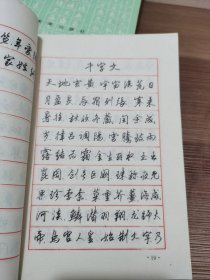 千字文
天地玄黄宇宙洪荒日
月盈昃辰宿列张寒来
暑往秋收冬藏闰余成
岁律吕调阳云腾致雨
露结为霜金生丽水玉出
昆冈剑号巨阙珠称夜光
果珍李柰菜重芥姜海咸
河淡鳞潜羽翔龙师火
帝鸟官人皇始制文字乃
·19·